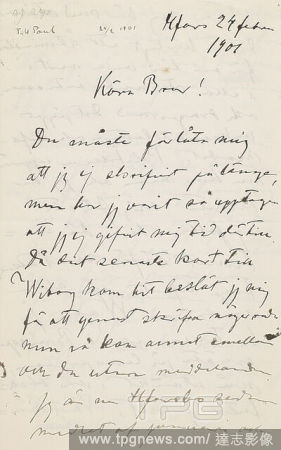 Till Paul 24/2 1901
Hfors 24 febr
1901
Kära Bror!
Du måste förlåta mig
att jag ej skrifvit på länge,
men har jag varit så upptagen
att jag ej gifvit mig tid därtill.
Då det senaste kort till
Wiborg kom hit beslöt jag mig
få att genast skrifva några ord
men så kom annat emellan
och du utan meddelande.
Jag är nu Hforsbo sedan
medlet af januari och
www.tpgnews.com/達志影像